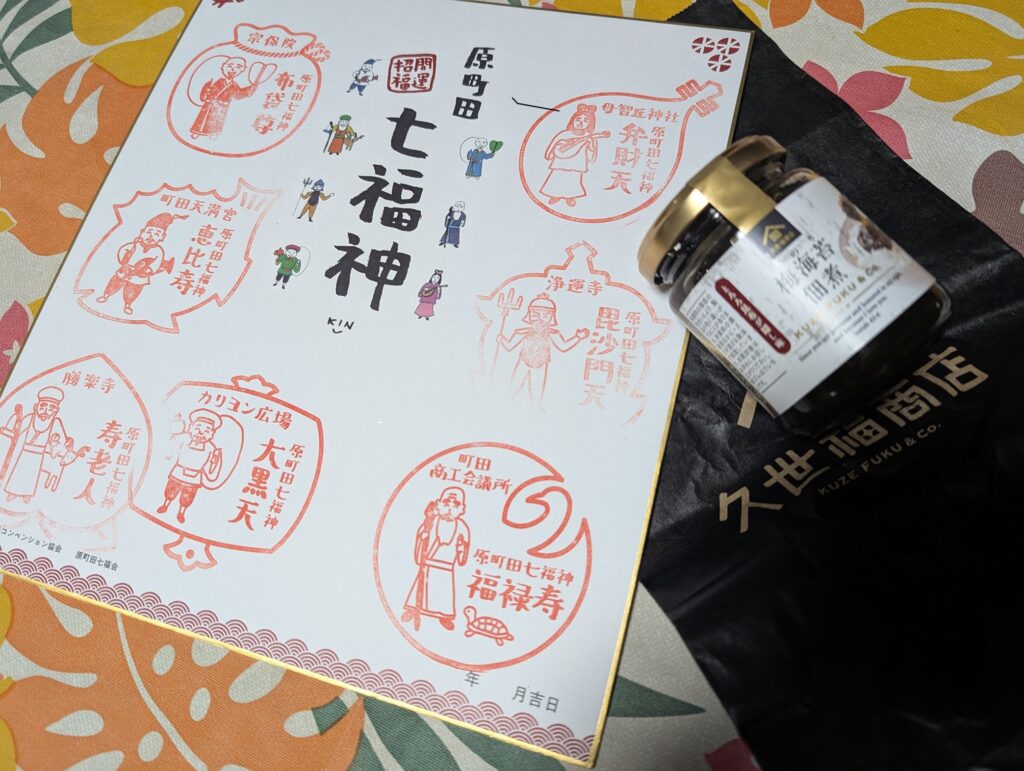 原町田
開運
招福
七福神
KIN
宗保院
原町田七福神
布袋尊
母智丘神社
原町田七福神
弁財天
町田天満宮
原町田七福神
恵比寿
浄運寺
原町田七福神
毘沙門天
勝楽寺
原町田七福神
寿老人
カリヨン広場
原町田七福神
大黒天
町田
商工会議所
原町田七福神
福禄寿
コンベンション協会 原町田七福会
年 月吉日
梅海苔
佃煮
KUZE FUKU & Co.
久世福商店
KUZE FUKU & CO.